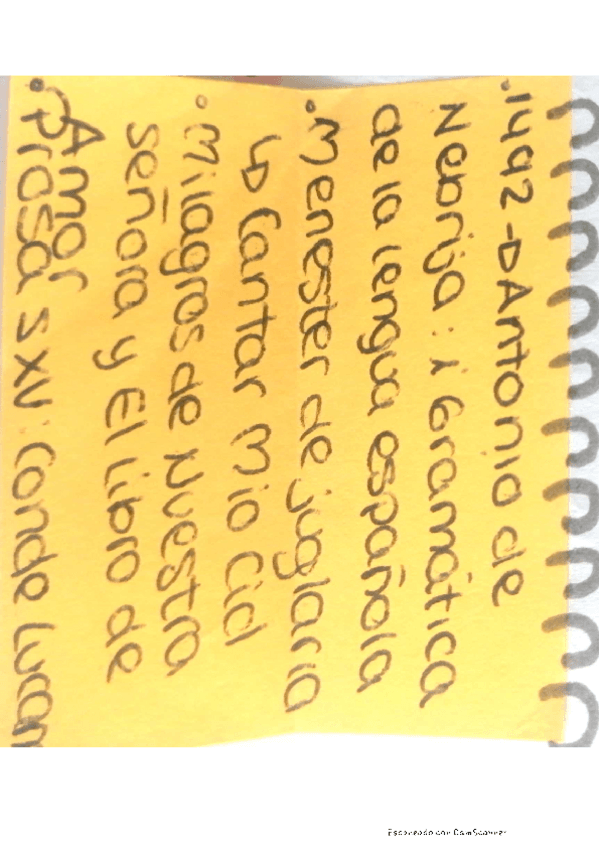 .1492→Antonio de
Nebrija: 1 Gramática
de la lengua española
.Menester de juglaria
↳ Cantar Mio Cid
•Milagros de Nuestra
señora y El Libro de
Amor
•Prosa SXV: Conde Lucan
Escaneado con CamScanner